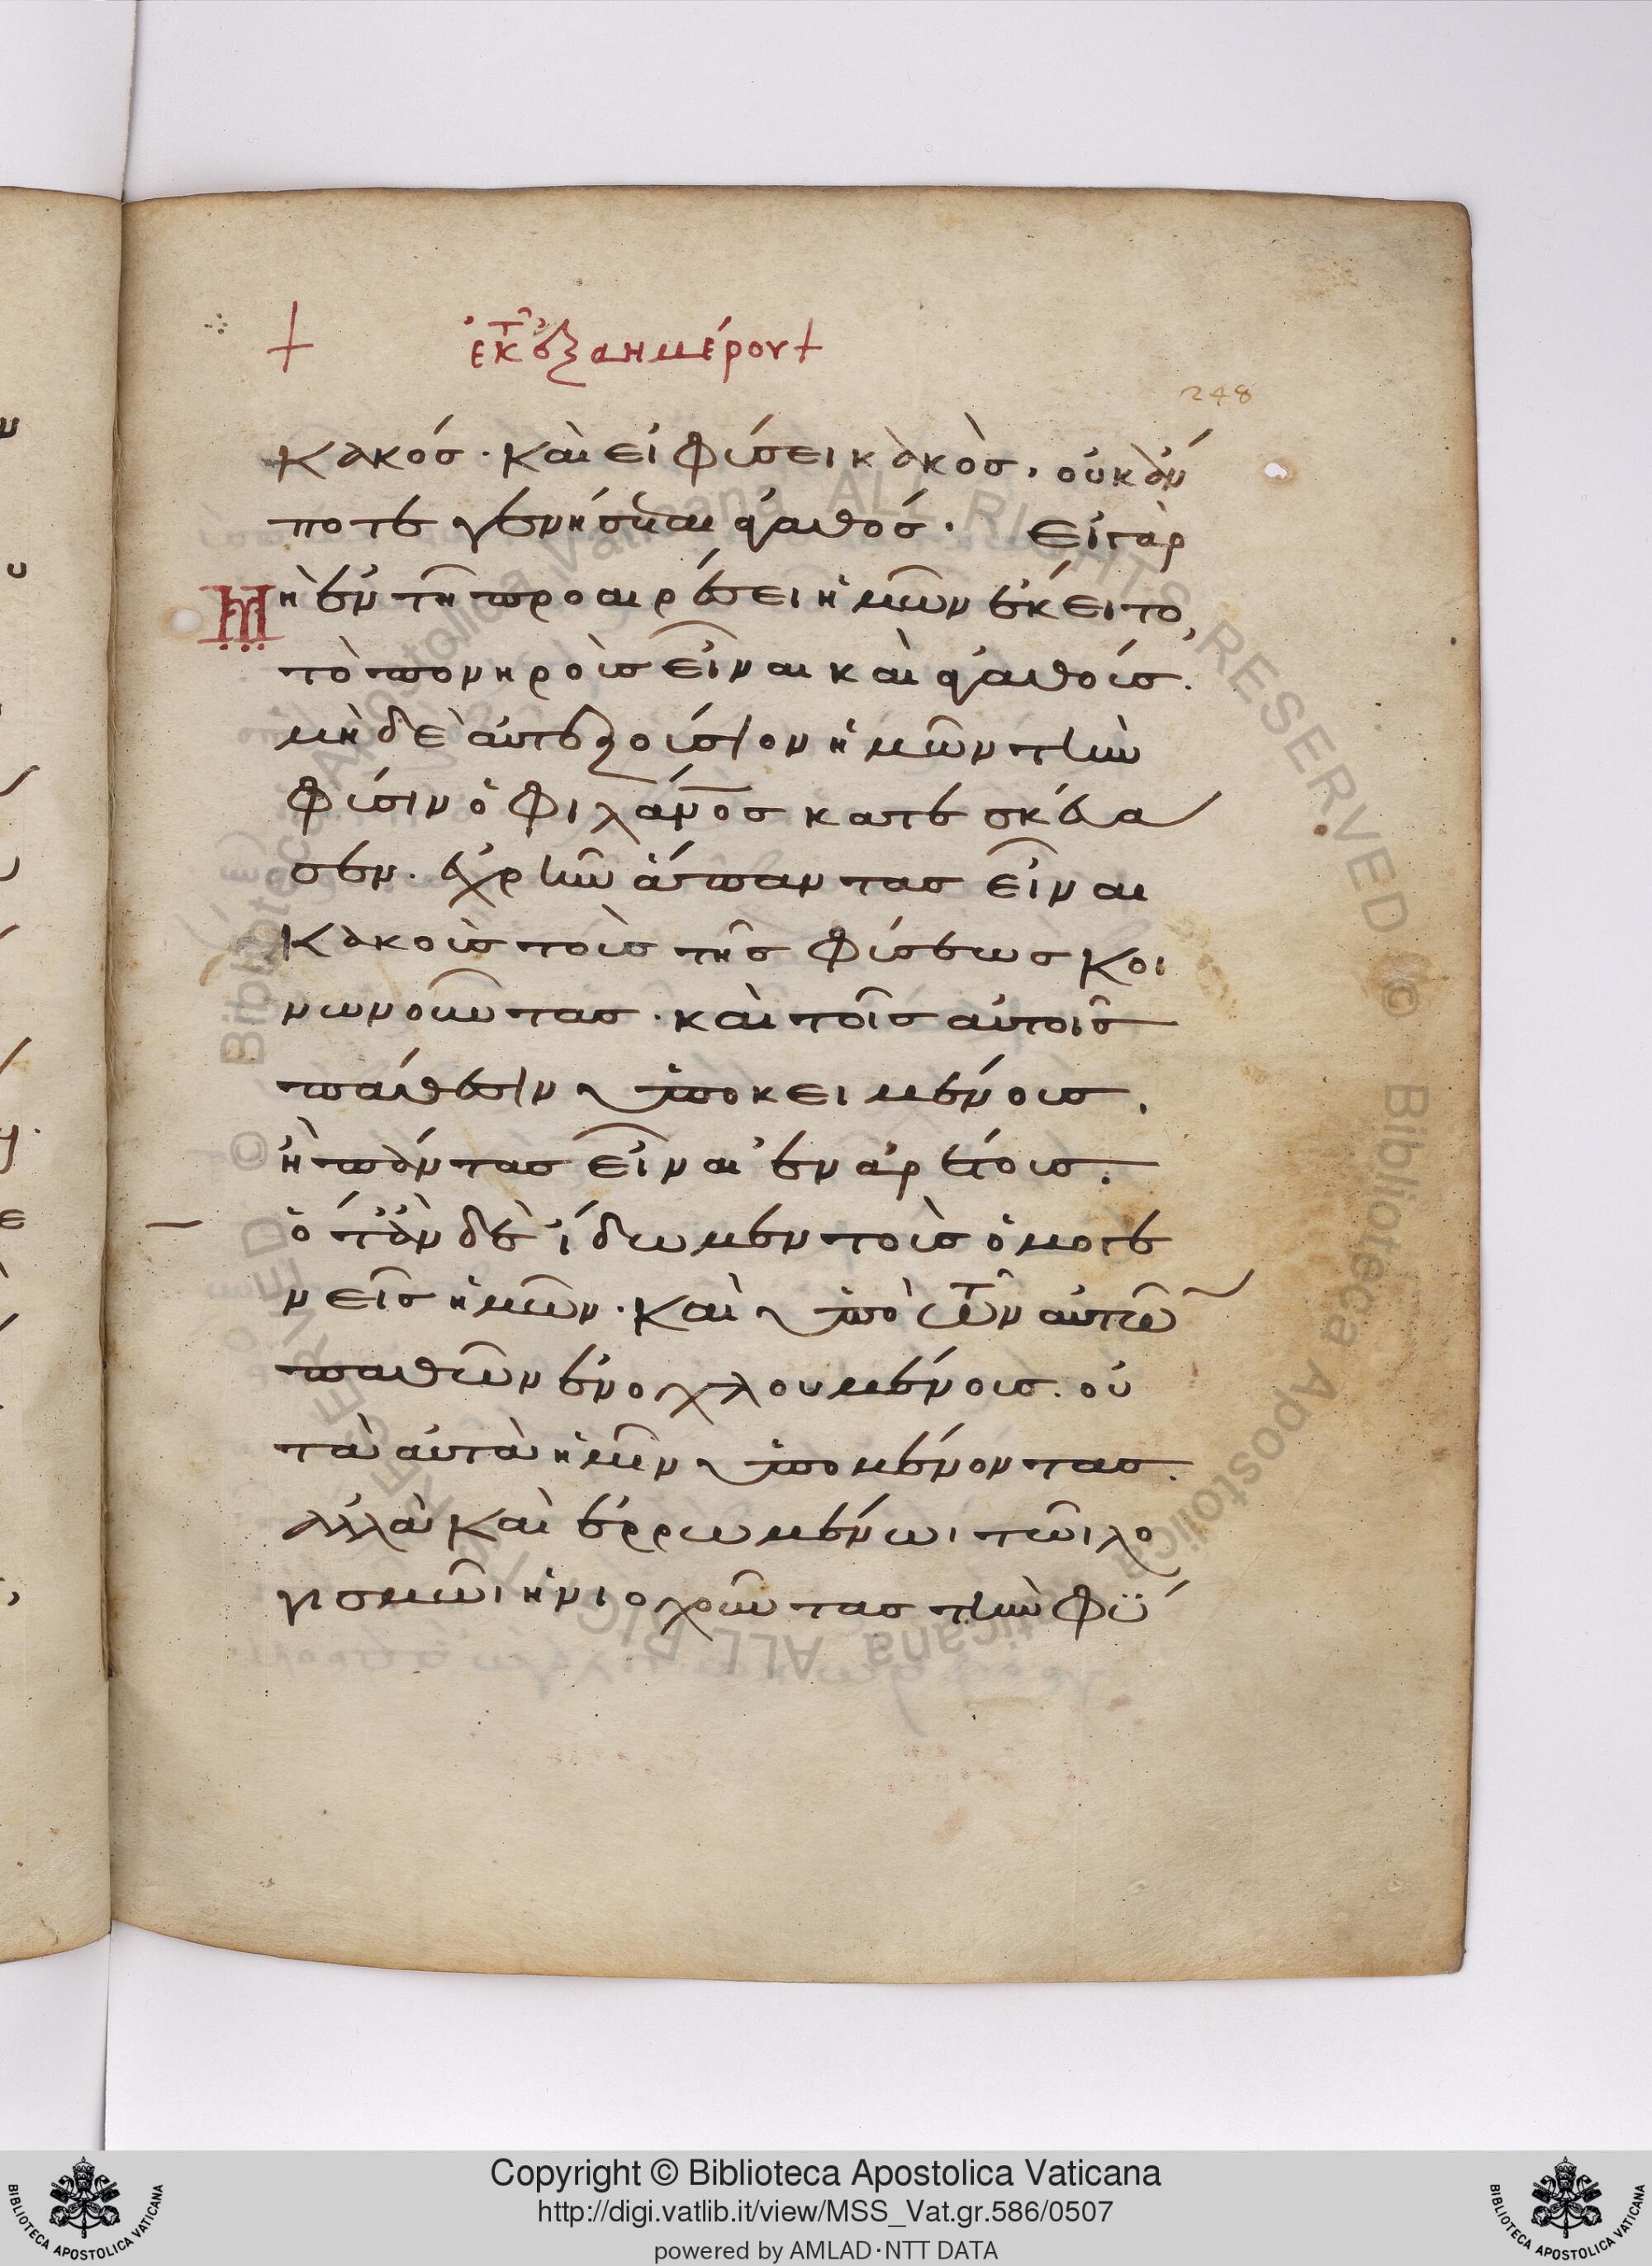 + ἐκ τ(οῦ) ἑξαημέρου +
248
κακός· καὶ εἰ φύσει κακὸς, οὐκ ἄν
ποτε γενήσεται ἀγαθός. Εἰ γὰρ
μὴ ἐν τῆ προαιρέσει ἡμῶν ἔκειτο,
τὸ πονηροὺς εἶναι καὶ ἀγαθούς.
μὴ δὲ αὐτεξούσιον ἡμῶν τὴν
φύσιν ὁ φιλάν̅ο̅ς κατεσκεύα
σεν. ἐχρῆν ἅπαντας εἶναι
κακοὺς τοὺς τῆς φύσεως κοι
νωνοῦντας· καὶ τοῖς αὐτοῖς
πάθεσιν ὑποκειμένους,
ἢ πάντας εἶναι ἐναρέτους.
ὅτ' ἂν δὲ ἴδωμεν τοὺς ὁμογε
νεῖς ἡμῶν· καὶ ὑπὸ τῶν αὐτῶ
παθῶν ἐνοχλουμένους. οὐ
ταὐτὰ ἡμῖν ὑπομένοντας.
ἀλλὰ καὶ ἐρρωμένωι τῶι λο
γισμῶι ἡνιοχοῦντας τὴν φύ
Copyright © Biblioteca Apostolica Vaticana
http://digi.vatlib.it/view/MSS_Vat.gr.586/0507
powered by AMLAD·NTT DATA
BIBLIOTECA APOSTOLICA VATICANA
BIBLIOTECA APOSTOLICA VATICANA